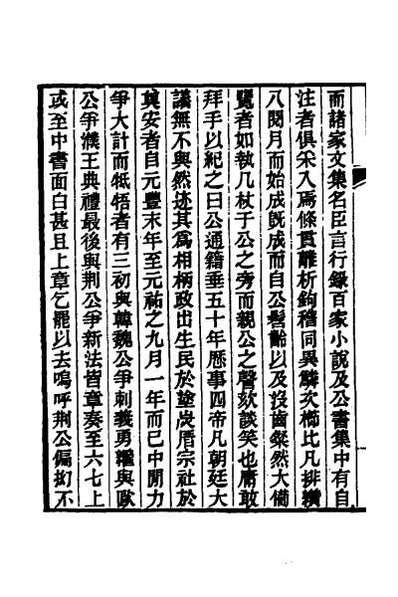 而諸家文集名臣言行錄百家小說及公書集中有自
注者俱采入焉條貫離析鉤稽同異鱗次櫛比凡排纘
八閱月而始成旣成而自公髫齡以及沒齒粲然大備
覽者如執几杖于公之旁而親公之聲欬談笑也庸敢
拜手以紀之曰公通籍垂五十年歷事四帝凡朝廷大
議無不與然迹其爲相柄政出生民於塗炭厝宗社於
奠安者自元豐末年至元祐之九月一年而已中閒力
爭大計而牴牾者有三初與韓魏公爭刺義勇繼與歐
公爭濮王典禮最後與荆公爭新法皆章奏至六七上
或至中書面白甚且上章乞罷以去嗚呼荆公偏拗不